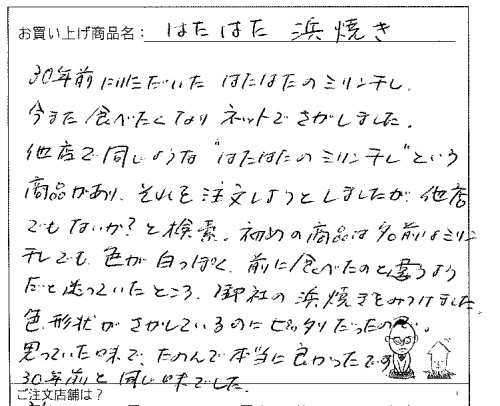 お買い上げ商品名: はたはた 浜焼き
30年前にいただいた はたはたのミリン干し、
今また食べたくなり ネットでさがしました。
他店で同じような"はたはたのミリン干し"という
商品があり、それを注文しようとしましたが、他店
でもないか?と検索。初めの商品は名前はミリン
干しでも 色が白っぽく、前に食べたのと違うよう
だと迷っていたところ、御社の浜焼きをみつけました。
色形状がさがしているのにピッタリだったので。
思っていた味で、たのんで本当に良かったです
30年前と同じ味でした。
ご注文店舗は?